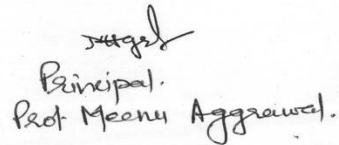 Principal.
Prof Meenu Aggrawal.